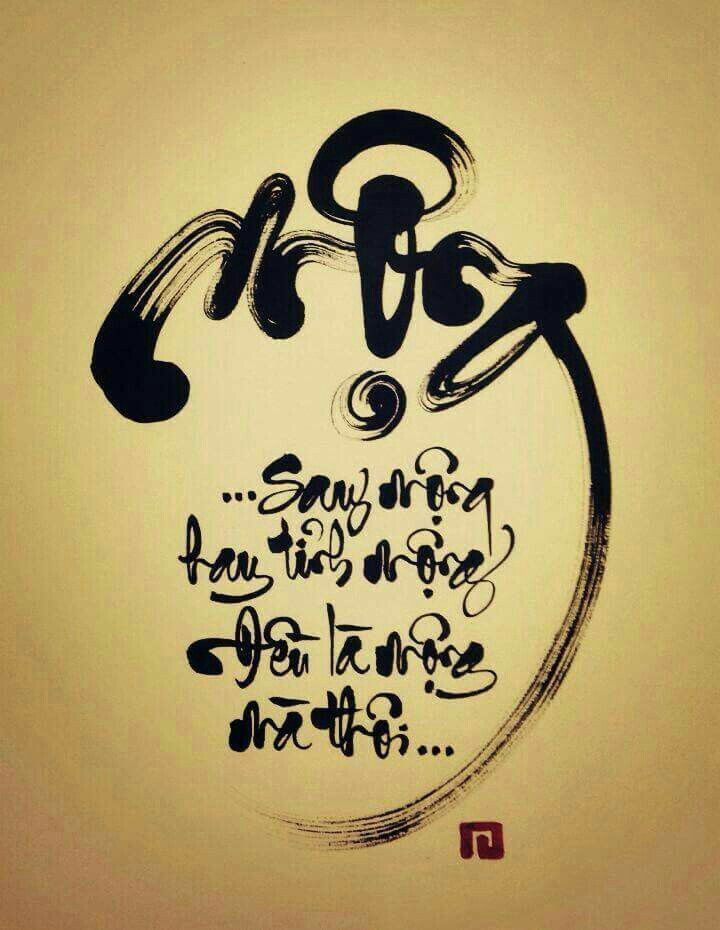 Mộng
...Say mộng
hay tỉnh mộng
Đều là mộng
mà thôi...